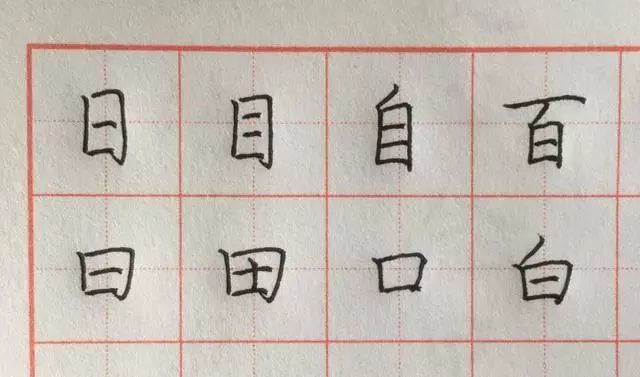 日目自百
曰田口白